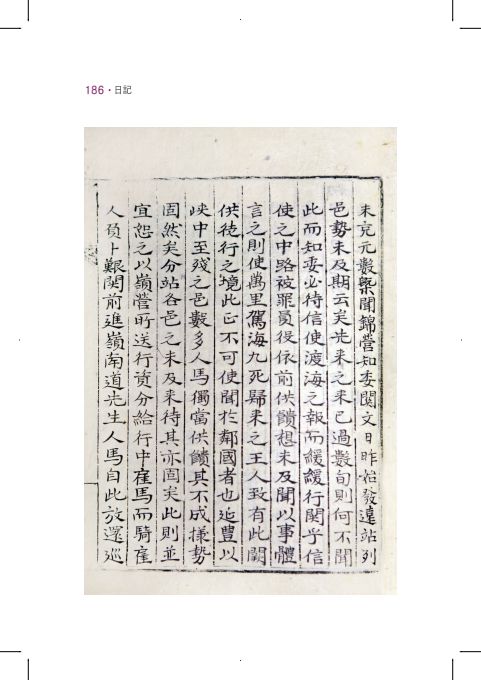 186 · 日記
未克充數槩聞錦營知委関文日昨始發遠站列
邑勢未及期云矣先来之来已過數旬則何不聞
此而知委必待信使渡海之報而緩緩行関乎信
使之中路被罪員役依前供饋想未及聞以事體
言之則使萬里駕海九死歸来之王人致有此闕
供徒行之境此正不可使聞於鄰國者也延豊以
峽中至殘之邑數多人馬獨當供饋其不成㨾勢
固然矣分站各邑之未及来待其亦固矣此則並
宜恕之以嶺營所送行資分給行中雇馬而騎雇
人負卜艱関前進嶺南道先生人馬自此放還巡